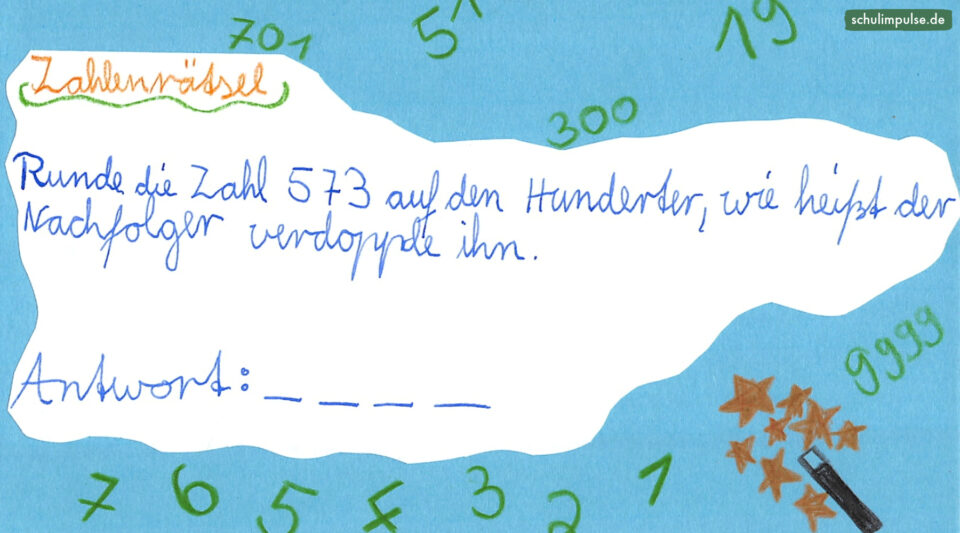 schulimpulse.de
701 51 19
Zahlenrätsel
300
Runde die Zahl 573 auf den Hunderter, wie heißt der
Nachfolger verdopple ihn.
9999
Antwort: _ _ _ _
7 6 5 4 3 2 1